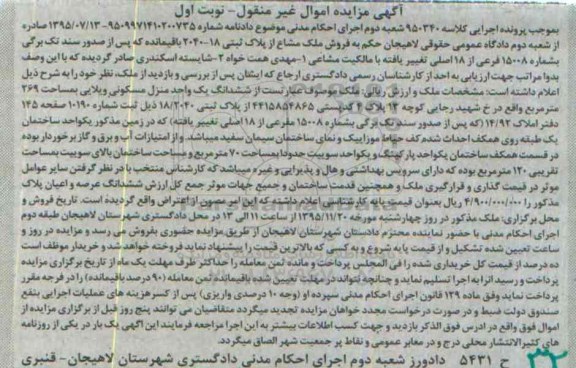 آگهی مزایده اموال غیر منقول- نوبت اول
بموجب پرونده اجرایی کلاسه ۹۵۰۳۴۰ شعبه دوم اجرای احکام مدنی موضوع دادنامه شماره ۹۵۰۹۹۷۱۴۱۰۲۰۰۷۳۵-۱۳۹۵/۰۷/۱۳ صادره
از شعبه دوم دادگاه عمومی حقوقی لاهیجان حکم به فروش ملک مشاع از پلاک ثبتی ۱۸-۲۰۴۰ باقیمانده که پس از صدور سند تک برگی
بشماره ۱۵۰۰۸ فرعی از ۱۸ اصلی تغییر یافته با مالکیت مشاعی ۱-مهدی همت خواه ۲-شایسته اسکندری صادر گردیده که با این وصف
بدوا مراتب جهت ارزیابی به احد از کارشناسان رسمی دادگستری ارجاع که ایشان پس از بررسی و بازدید از ملک، نظر خود را به شرح ذیل
اعلام داشته است: مشخصات ملک و ارزش ریالی: ملک موصوف عبارتست از ششدانگ یک واحد منزل مسکونی ویلایی بمساحت ۲۶۹
مترمربع واقع در خ شهید رجایی کوچه ۱۳ پلاک ۴ کدپستی ۴۴۱۵۸۵۴۸۶۵ از پلاک ثبتی ۱۸/۲۰۴۰ ذیل ثبت شماره ۱۰۱۹۰ صفحه ۱۴۵
دفتر املاک ۱۴/۹۲ (که پس از صدور سند تک برگی بشماره ۱۵۰۰۸ مفرعی از ۱۸ اصلی تغییر یافته) که در زمین مذکور یکواحد ساختمان
یک طبقه روی همکف احداث شده کف حیاط موزاییک و نمای ساختمان سیمان سفید میباشد. و از امتیازات آب و برق و گاز برخوردار بوده
در قسمت همکف ساختمان یکواحد پارکینگ و یکواحد سوییت حدودا بمساحت ۷۰ مترمربع و مساحت ساختمان بالای سوییت بمساحت
تقریبی ۱۲۰ مترمربع بوده که دارای سرویس بهداشتی و هال و پذیرایی و غیره میباشد که کارشناس منتخب با در نظر گرفتن سایر عوامل
موثر در قیمت گذاری و قرارگیری ملک و همچنین قدمت ساختمان و جمیع جهات موثر جمع کل ارزش ششدانگ عرصه و اعیان پلاک
مذکور را ۴/۹۰۰/۰۰۰/۰۰۰ ریال بعنوان قیمت پایه کارشناسی اعلام داشته که این امر مصون از اعتراض واقع گردیده است. تاریخ فروش و
محل برگزاری: ملک مذکور در روز چهارشنبه مورخه ۱۳۹۵/۱۱/۲۰ از ساعت ۱۱ الی ۱۲ در محل دادگستری شهرستان لاهیجان طبقه دوم
اجرای احکام مدنی با حضور نماینده محترم دادستان شهرستان لاهیجان از طریق مزایده حضوری بفروش می رسد و مزایده در روز و
ساعت تعیین شده تشکیل و از قیمت پایه شروع و به کسی که بالاترین قیمت را پیشنهاد نماید فروخته خواهد شد و خریدار موظف است
ده درصد از قیمت کل خریداری شده را فی المجلس پرداخت و مانده ثمن معامله را حداکثر ظرف مهلت یک ماه از تاریخ برگزاری مزایده
پرداخت و رسید انرا به اجرا تسلیم نماید و چنانچه نتواند در مهلت تعیین شده باقیمانده ثمن معامله (۹۰ درصد باقیمانده) را در فرجه مقرر
پرداخت نماید وفق ماده ۱۲۹ قانون اجرای احکام مدنی سپرده او (وجه ۱۰ درصدی واریزی) پس از کسر هزینه های عملیات اجرایی بنفع
صندوق دولت ضبط و در صورت درخواست مجدد خواهان مزایده تجدید میگردد متقاضیان می توانند پنج روز قبل از برگزاری مزایده از
اموال فوق واقع در ادرس فوق الذکر بازدید و جهت کسب اطلاعات بیشتر به این اجرا مراجعه فرمایند این آگهی یک بار در یکی از روزنامه
های کثیرالانتشار محلی درج و در معابر عمومی و نقاط پر جمعیت شهر الصاق میگردد.
ح ۵۴۳۱ دادورز شعبه دوم اجرای احکام مدنی دادگستری شهرستان لاهیجان- قنبری